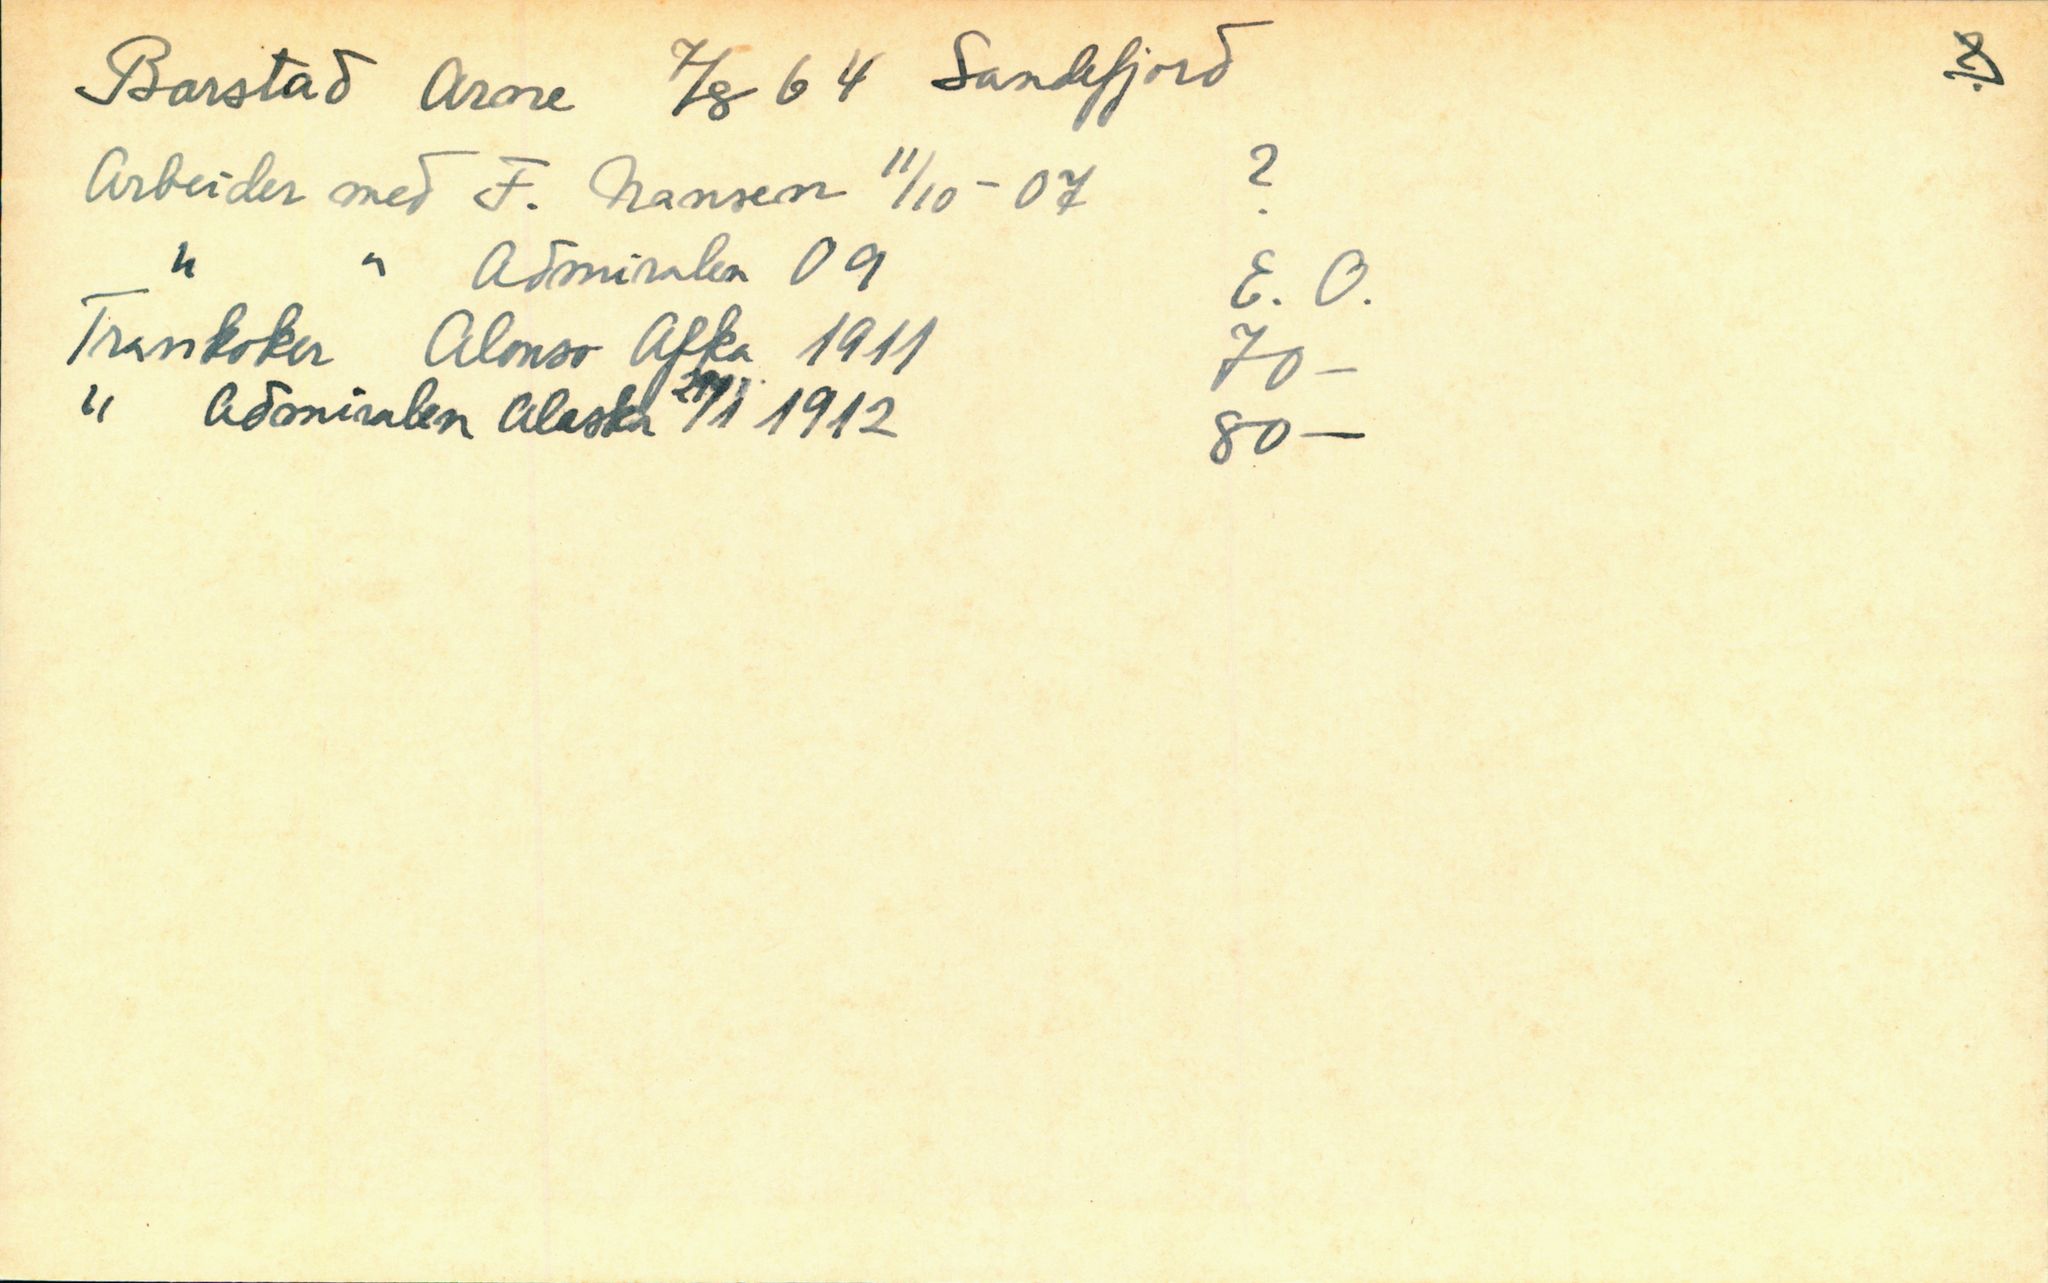 Barstad Arne 7/8 64 Sandefjord
Arbeider med F. Nansen 11/10 - 07 ?
" " Admiralen 09 E. O.
Trankoker Alonso Afka 1911 70 -
" Admiralen Alaska /1 1912 80 -